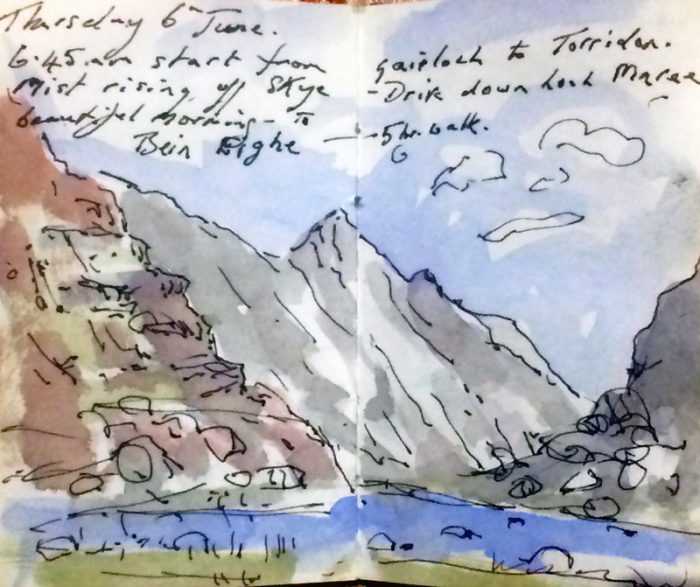 Thursday 6th June.
6.45.am start from Gairloch to Torridon.
Mist rising off Skye - Drive down Loch Maree
beautiful morning - to
Bein Eighe — 5 hr. walk.